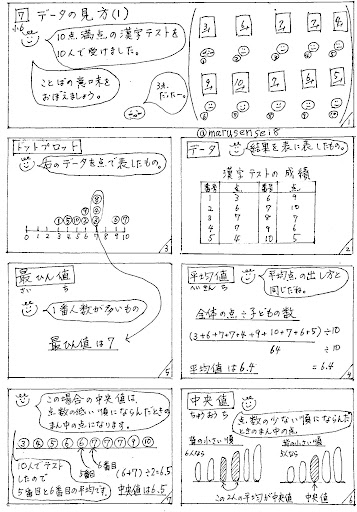 7 データの見方(1)
小6
10点満点の漢字テストを
10人で受けました。
ことばの意味を
おぼえましょう。
3点
だったー。
3点 6点 7点 7点 4点
9点 10点 7点 6点 5点
@marusensei8
ドットプロット
右のデータを点で表したもの。
0 1 2 3 4 5 6 7 8 9 10
3
データ
結果を表に表したもの。
漢字テストの成績
番号 点 番号 点
1 3 6 9
2 6 7 10
3 7 8 7
4 7 9 6
5 4 10 5
2
最ひん値
さい ち
1番人数が多いもの
最ひん値は7
平均値
へいきん ち
平均点の出し方と
同じだね。
全体の点÷子どもの数
(3+6+7+7+4+9+10+7+6+5)÷10
64 ÷10
平均値は6.4 =6.4
この場合の中央値は、
点数の低い順にならんだときの
まん中の点になります。
3 4 5 6 6 7 7 7 9 10
5番目
6番目
10人でテスト
したので
5番目と6番目の平均です。
(6+7)÷2=6.5
中央値は6.5
中央値
ちゅうおうち
点数の少ない順にならんだ
ときのまん中の点。
背の小さい順
背の小さい順
6人なら
5人なら
この2人の平均が中央値
中央値